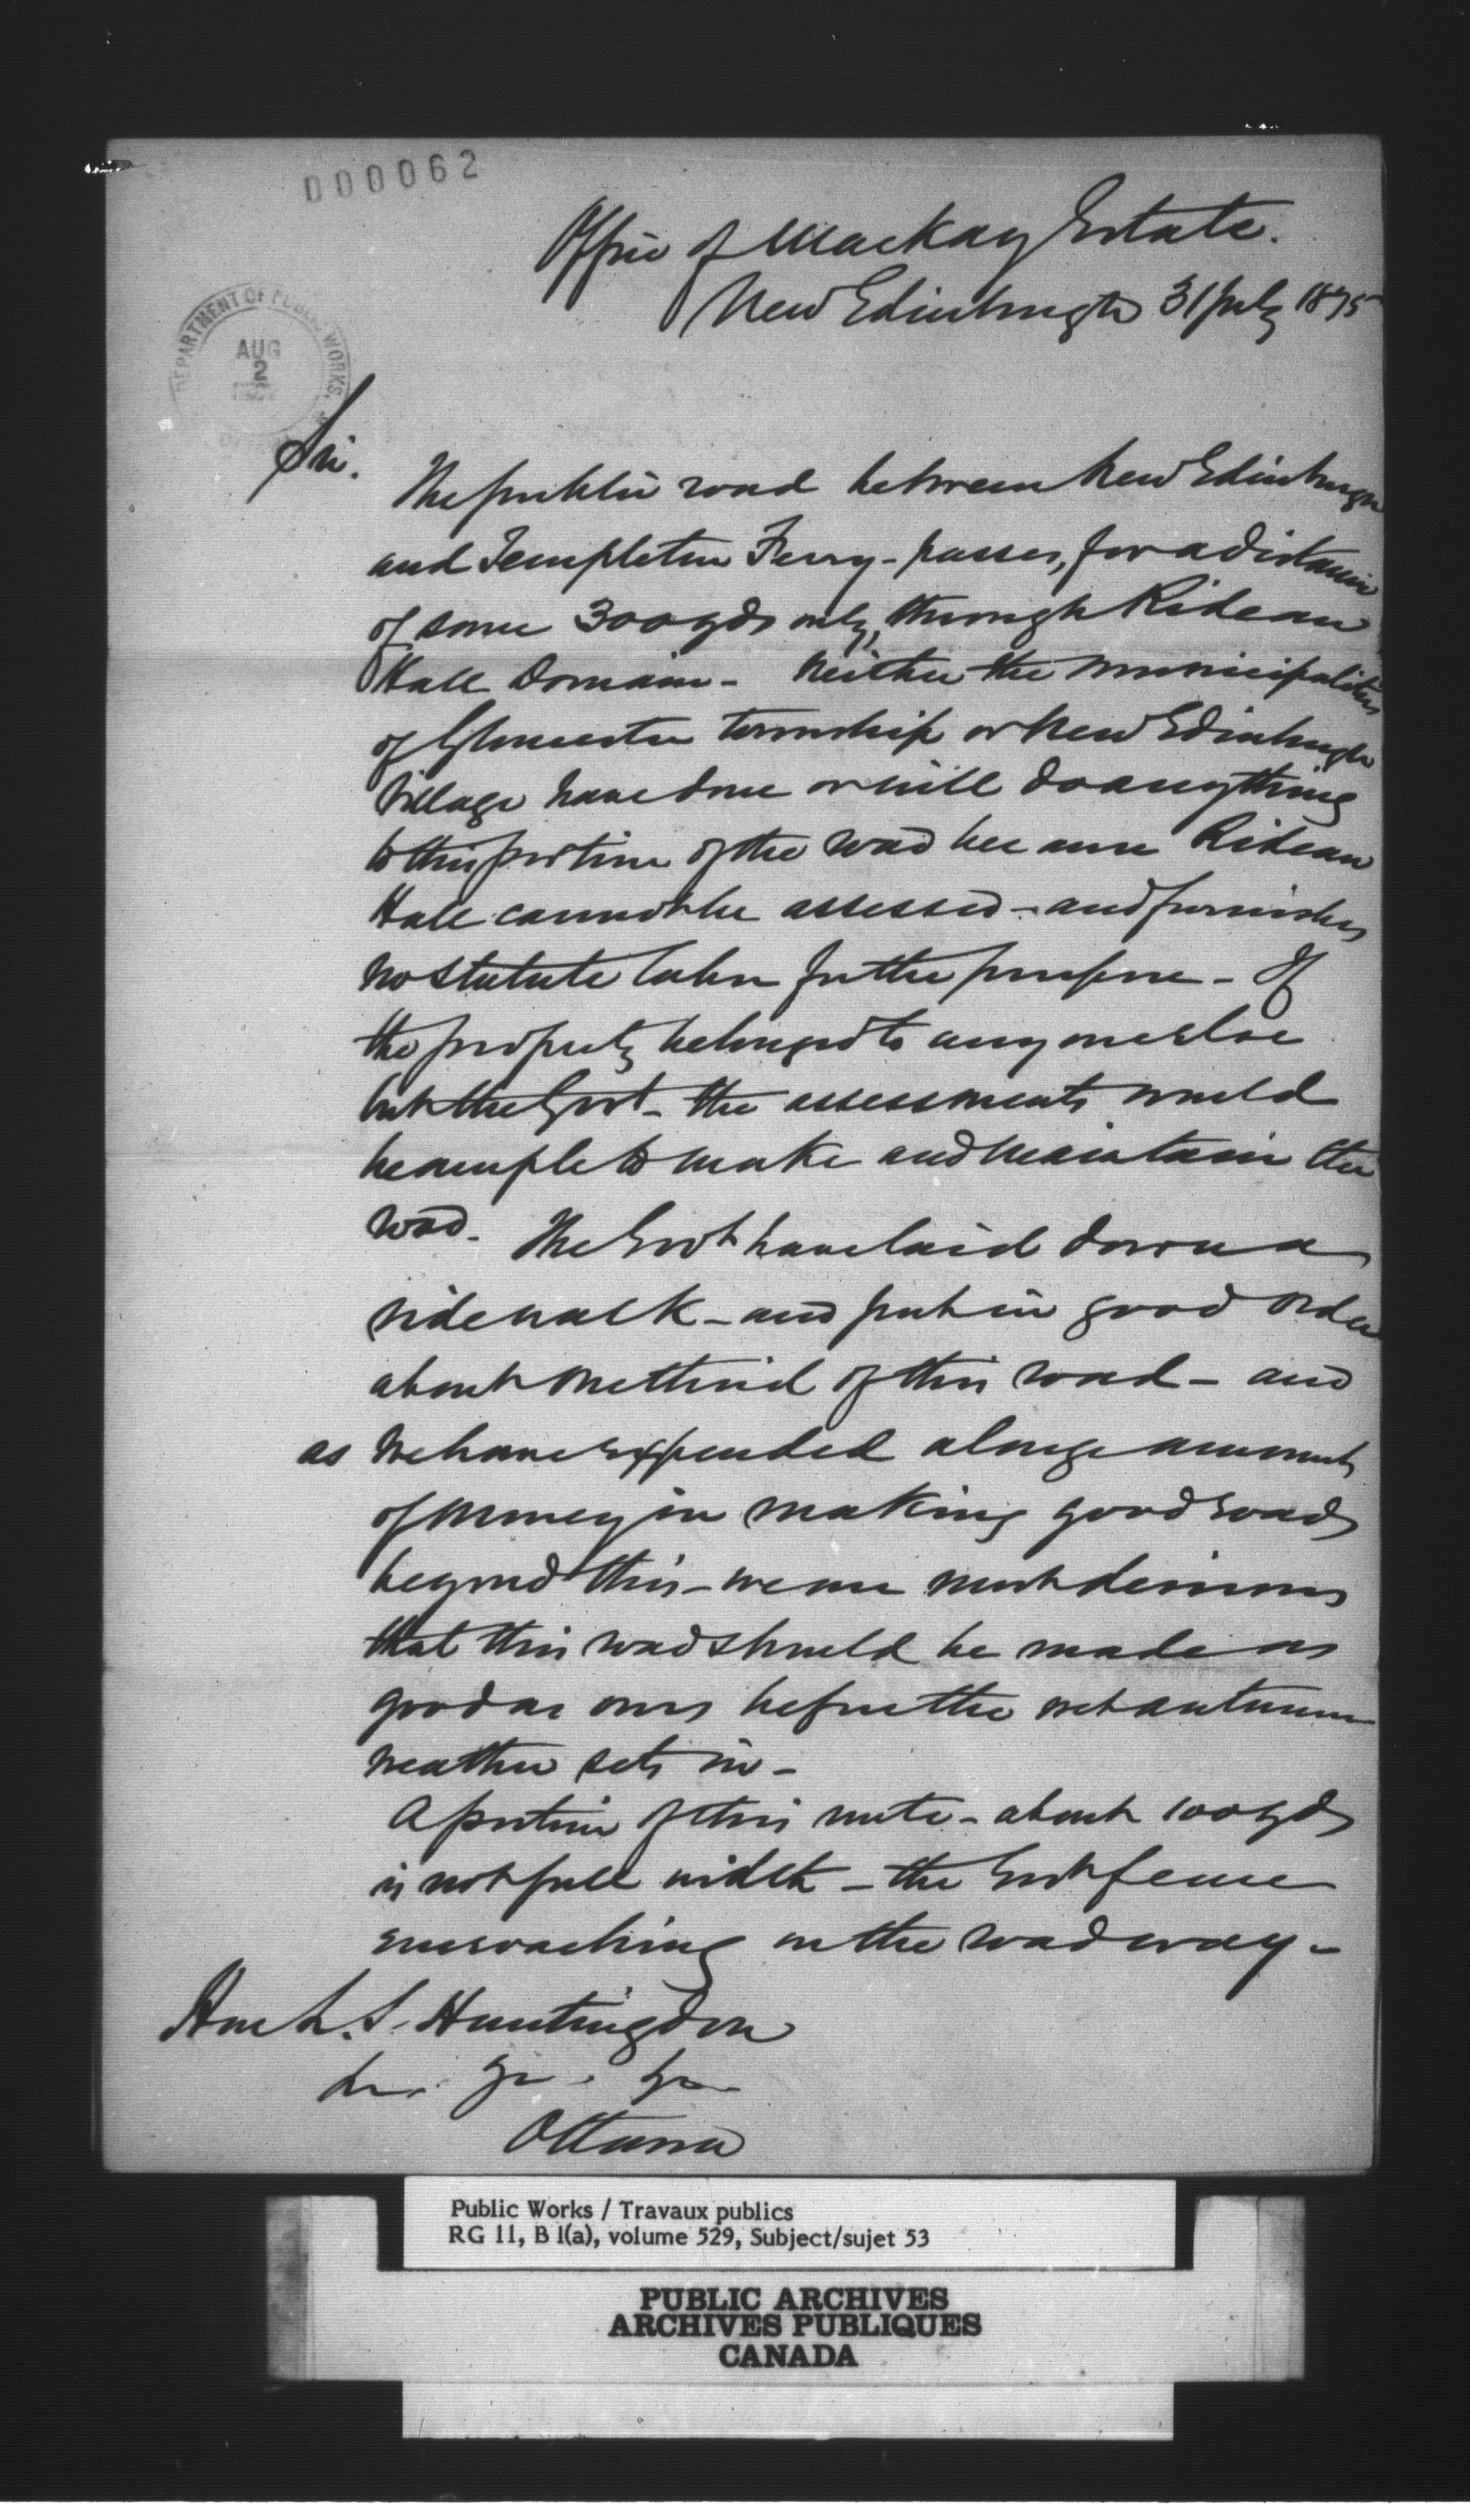 000062
Office of MacKay Estate.
New Edinburgh 31 July 1875
DEPARTMENT OF PUBLIC WORKS,
AUG
2
Sir.
The public road between New Edinburgh
and Templeton Ferry - passes, for a distance
of some 300 yds only, through Rideau
Hall Domain - Neither the municipalities
of Gloucester township or New Edinburgh
Village have done or will do anything
to this portion of the road because Rideau
Hall cannot be assessed - and furnishes
no statute labor for the purpose - If
the property belonged to any one else
but the Govt - the assessments would
be ample to make and maintain the
road. The Govt have laid down a
sidewalk - and put in good order
about one third of this road - and
as we have expended a large amount
of money in making good roads
beyond this - we are most desirous
that this road should be made as
good as ours before the wet autumn
weather sets in -
A portion of this route - about 100 yds
is not full width - the Govt fence
encroaching on the roadway -
Hon L. S. Huntingdon
Ottawa
Public Works / Travaux publics
RG 11, B 1(a), volume 529, Subject/sujet 53
PUBLIC ARCHIVES
ARCHIVES PUBLIQUES
CANADA